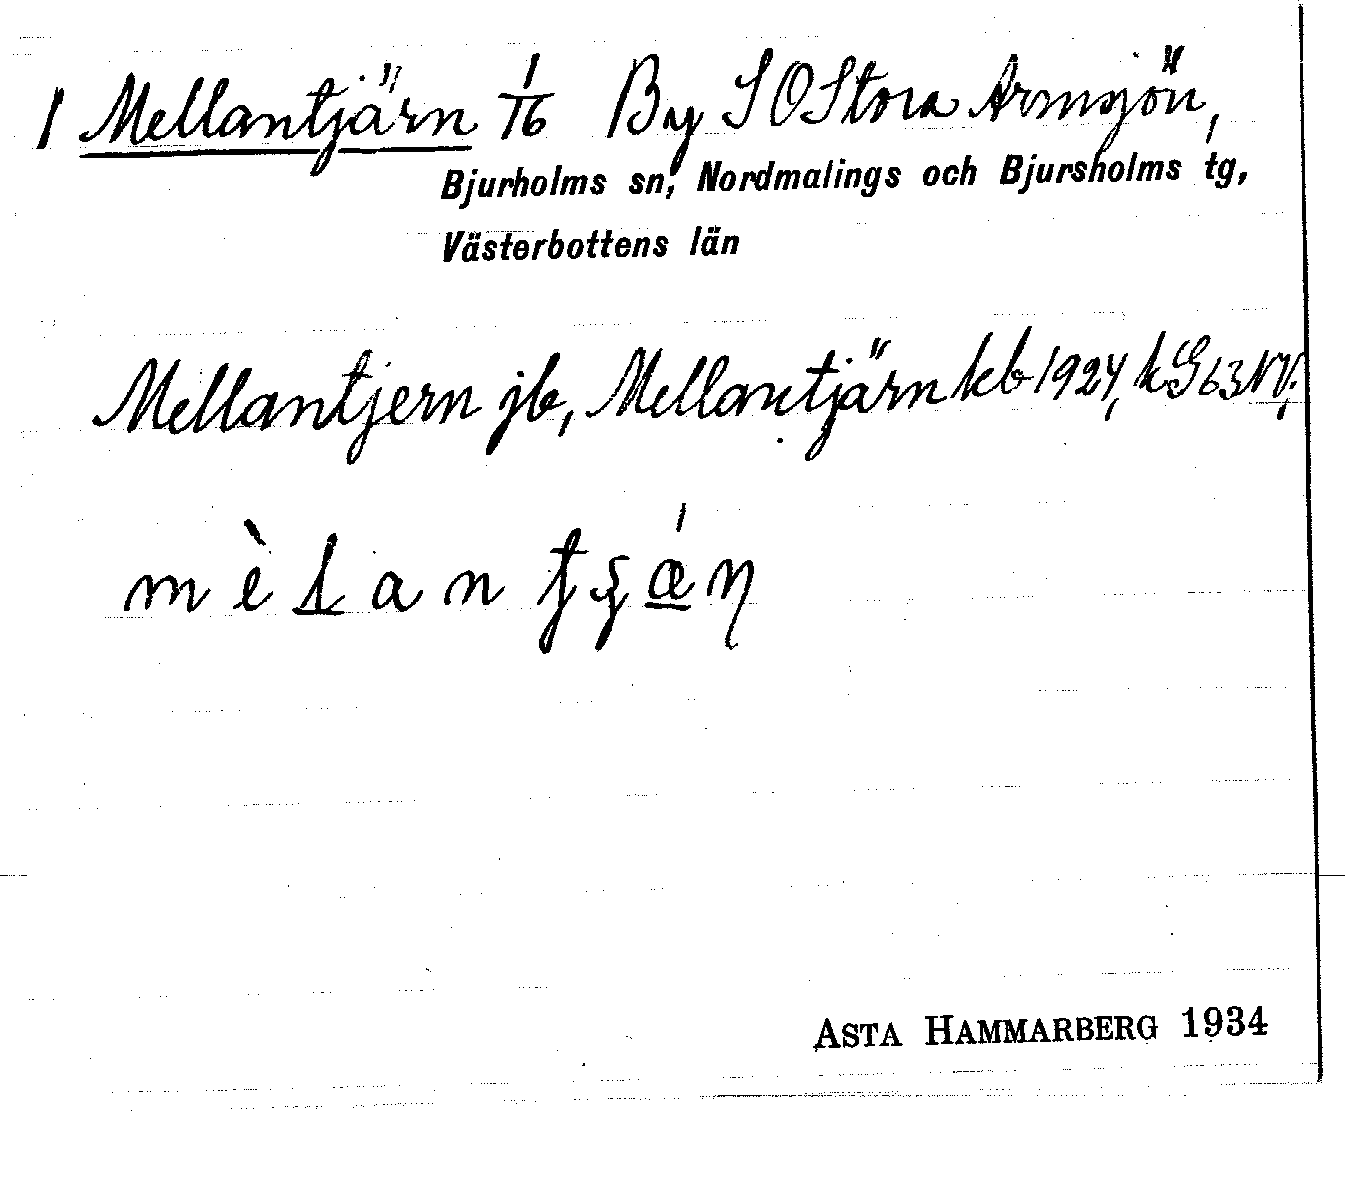 1 Mellantjärn 1/16 By S O Stora Armsjön,
Bjurholms sn, Nordmalings och Bjursholms tg,
Västerbottens län
Mellantjern jb, Mellantjärn kb 1924, kG 63 NV.
mèlan
ASTA HAMMARBERG 1934